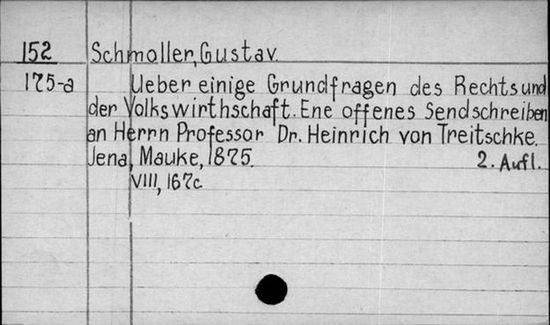 152 Schmoller, Gustav.
175-a Ueber einige Grundfragen des Rechts und
der Volkswirthschaft. Ene offenes Sendschreiben
an Herrn Professor Dr. Heinrich von Treitschke.
Jena, Mauke, 1875. 2. Aufl.
VIII, 167c